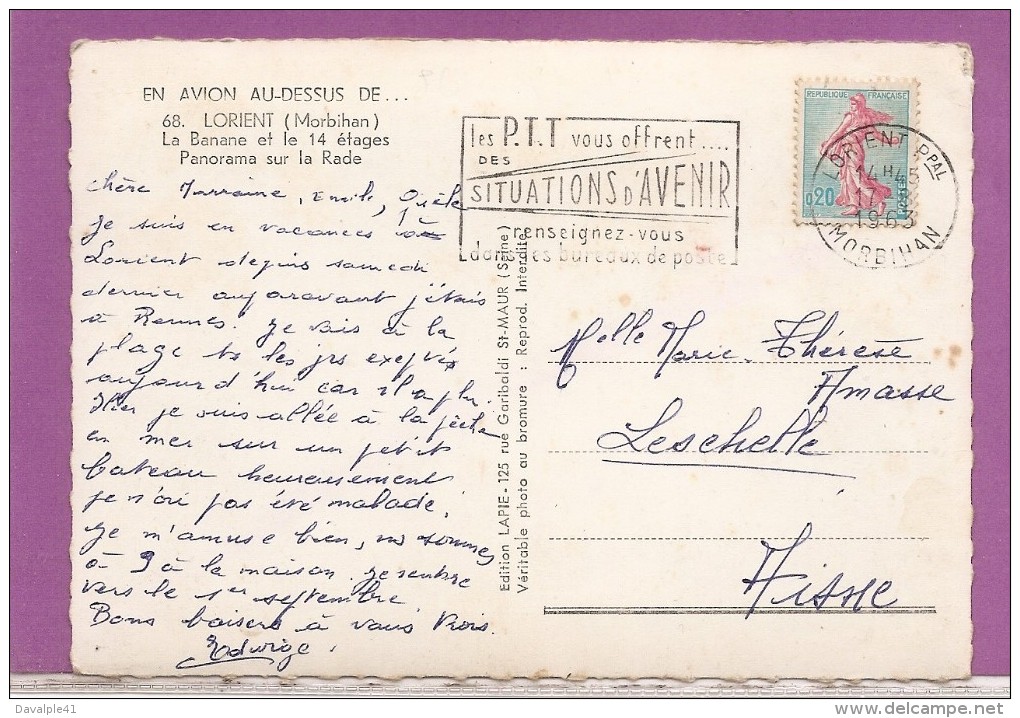 EN AVION AU-DESSUS DE...
68. LORIENT (Morbihan)
La Banane et le 14 étages
Panorama sur la Rade
Chère Marraine, Emile, Odèle
Je suis en vacances à
Lorient depuis samedi
dernier auparavant j'étais
à Rennes. Je vais à la
plage ts les jrs excepté
aujourd'hui car il a plu.
Hier je suis allée à la pêche
en mer sur un petit
bateau heureusement
je n'ai pas été malade.
Je m'amuse bien, ns sommes
à 9 à la maison. Je rentre
vers le 1er septembre
Bons baisers à vous trois.
Edwige.
Edition LAPIE - 125 rue Garibaldi St-MAUR (Seine)
Véritable photo au bromure : Reprod. Interdite
les P.T.T vous offrent....
DES
SITUATIONS D'AVENIR
renseignez-vous
dans les bureaux de poste
REPUBLIQUE FRANÇAISE
0,20
POSTES
LORIENT PPAL
14H45
1963
MORBIHAN
Melle Marie-Thérèse
Amasse
Leschelle
Aisne
Davalple41
www.delcampe.net